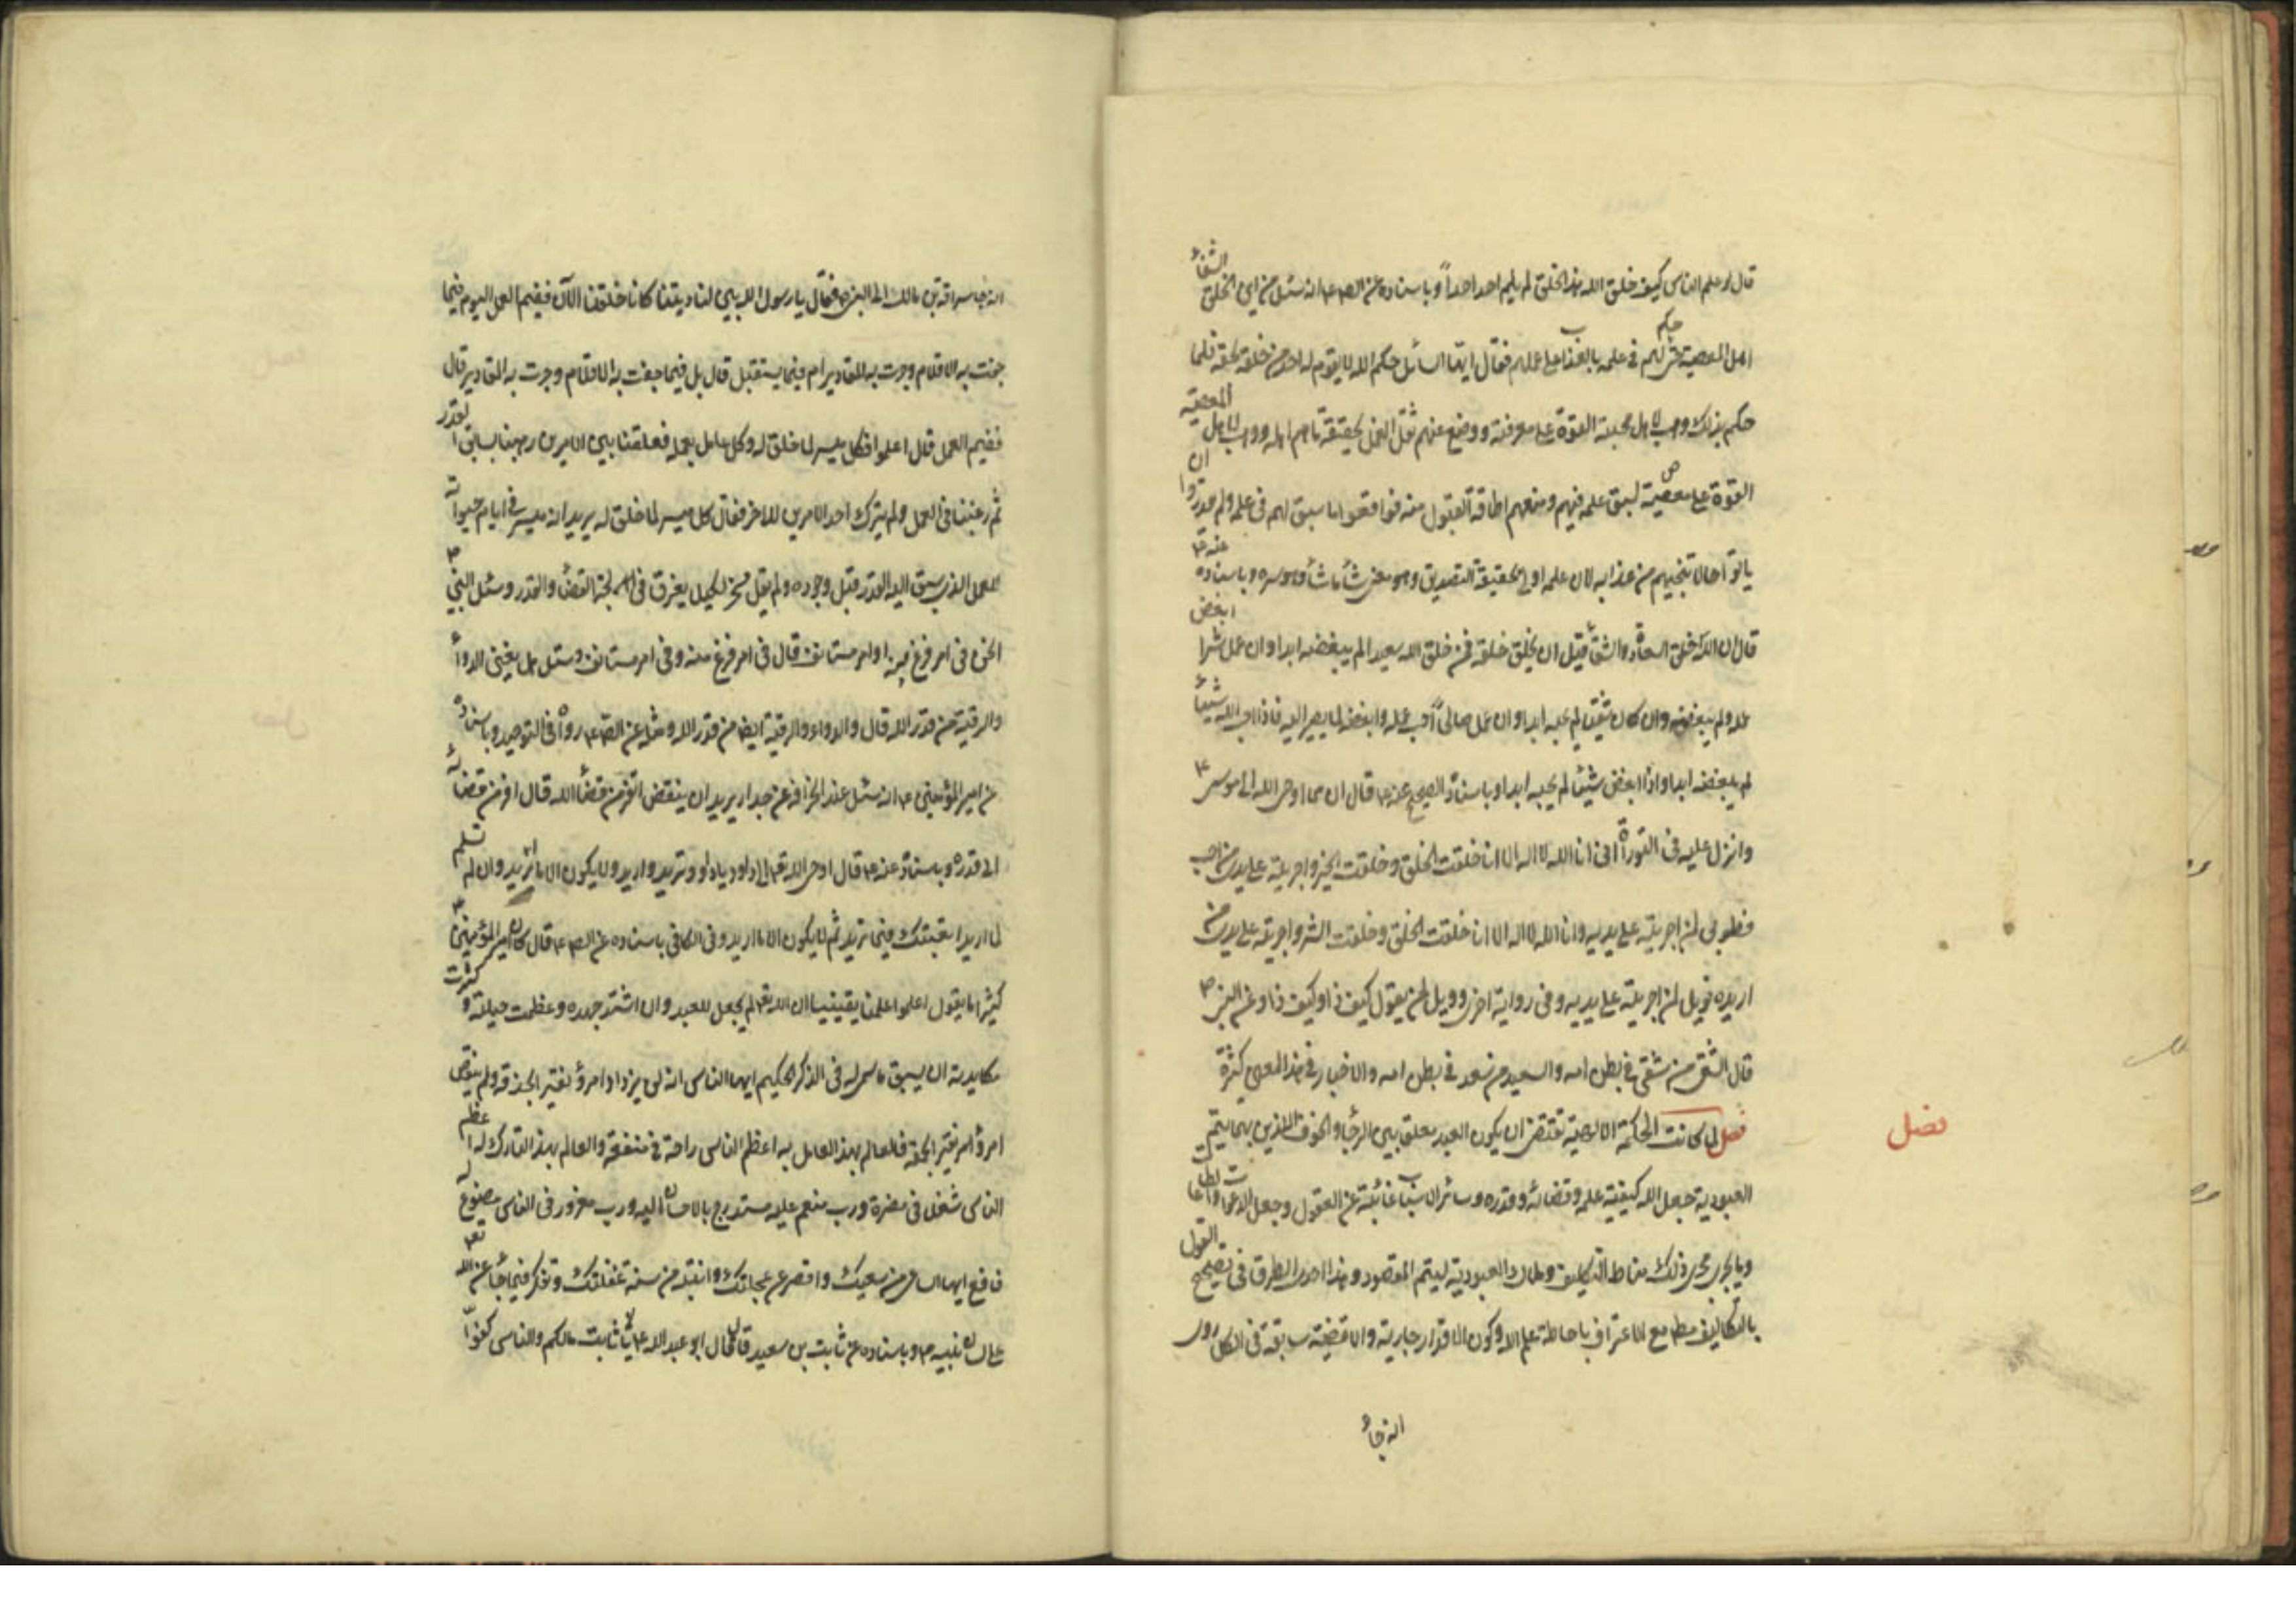 قال لو علم الناس كيف خلق الله هذا الخلق لم يلم احد احداً و باسناده عن الص ع انه سئل من اين لحق الشقاء
اهل المعصية حتى حكم لهم فى علمه بالعذاب على عملهم فقال ايها السائل حكم الله لا يقوم له احد من خلقه بحقه فلما
حكم بذلك وهب لاهل محبته القوة على معرفته ووضع عنهم ثقل العمل بحقيقة ما هم اهله ووهب لاهل المعصية
القوة على معصيته لسبق علمه فيهم ومنعهم اطاقة القبول منه فوافقوا ما سبق لهم فى علمه ولم يقدروا ان
ياتوا حالا تنجيهم من عذابه لان علمه اولى بحقيقة التصديق وهو معنى شاء ما شاء وهو سره و باسناده عنه ع
قال ان الله خلق السعادة والشقاء قبل ان يخلق خلقه فمن خلق الله سعيدا لم يبغضه ابدا وان عمل شرا ابغض
عمله ولم يبغضه وان كان شقيا لم يحبه ابدا وان عمل صالحاً احب عمله وابغضه لما يصير اليه فاذا احب الله شيئا
لم يبغضه ابدا واذا ابغض شيئا لم يحبه ابدا و باسناده الصحيح عنه ع قال ان مما اوحى الله الى موسى ع
وانزل عليه فى التوراة انى انا الله لا اله الا انا خلقت الخلق وخلقت الخير واجريته على يدى من احب
فطوبى لمن اجريته على يديه وانا الله لا اله الا انا خلقت الخلق وخلقت الشر واجريته على يدى من
اريده فويل لمن اجريته على يديه وفى رواية اخرى وويل لمن يقول كيف ذا وكيف ذا وعن النبى ص
قال الشقى من شقى فى بطن امه والسعيد من سعد فى بطن امه والاخبار فى هذا المعنى كثيرة
فصل لما كانت الحكمة الالهية تقتضى ان يكون العبد معلقا بين الرجاء والخوف اللذين بهما يتم
فصل
العبودية جعل الله كيفية علمه وقضائه وقدره وسائر الاسباب غائبة عن العقول وجعل الدعوات والطاعات
وما يجرى مجرى ذلك مناط التكليف وملاك العبودية ليتم المقصود وهذا احدى الطرق فى تصحيح القول
بالتكاليف مطم مع الاعتراف باحاطة علم الله وكون الاقدار جارية والاقضية سابقة فى الكل روى
انه جاء
انه جاء سراقة بن مالك الى النبى ص فقال يا رسول الله بين لنا ديننا كانا خلقنا الآن ففيم العمل اليوم فيما
جفت به الاقلام وجرت به المقادير ام فيما يستقبل قال بل فيما جفت به الاقلام وجرت به المقادير قال
ففيم العمل قال اعملوا فكل ميسر لما خلق له وكل عامل بعمله فعلقنا بين الامرين رهبنا بسابق القدر
ثم رغبنا فى العمل ولم يترك احد الامرين للاخر فقال كل ميسر لما خلق له يريد انه ميسر فى ايام حيواته
للعمل الذى سبق اليه القدر قبل وجوده ولم يقل مسخر لكيلا يغرق فى لجة القضاء والقدر وسئل النبى ص
انحن فى امر فرغ منه او امر مستانف قال فى امر فرغ منه وفى امر مستانف وسئل هل يغنى الدواء
والرقية من قدر الله قال والدواء والرقية ايضا من قدر الله ومثله عن الص ع رواه فى التوحيد و باسناده
عن امير المؤمنين ع انه سئل عند انحرافه عن جدار يريد ان ينقض اتفر من قضاء الله قال افر من قضائه
الى قدره و باسناده عنه ع قال اوحى الله تعالى الى داود يا داود تريد واريد ولا يكون الا ما اريد وان لم تسلم
لما اريد اتعبتك فيما تريد ثم لا يكون الا ما اريد وفى الكافى باسناده عن الص ع قال كان امير المؤمنين ع
كثيرا ما يقول اعلموا علما يقينيا ان الله تعالى لم يجعل للعبد وان اشتد جهده وعظمت حيلته وكثرت
مكايدته ان يسبق ما سمى له فى الذكر الحكيم ايها الناس انه لن يزداد امرؤ نقيرا بحذقه ولم ينقص
امرؤ نقيرا لحمقه فالعالم بهذا العامل به اعظم الناس راحة فى منفعة والعالم بهذا التارك له اعظم
الناس شغلا فى مضرة ورب منعم عليه مستدرج بالاحسان اليه ورب مغرور فى الناس مصنوع له
فافع ايها الساعى من سعيك واقصر عن عجلتك وانتبه من سنة غفلتك وتفكر فيما جاء عن الله تعالى
على لسان نبيه ص و باسناده عن ثابت بن سعيد قال قال ابو عبد الله ع يا ثابت مالكم والناس كفوا